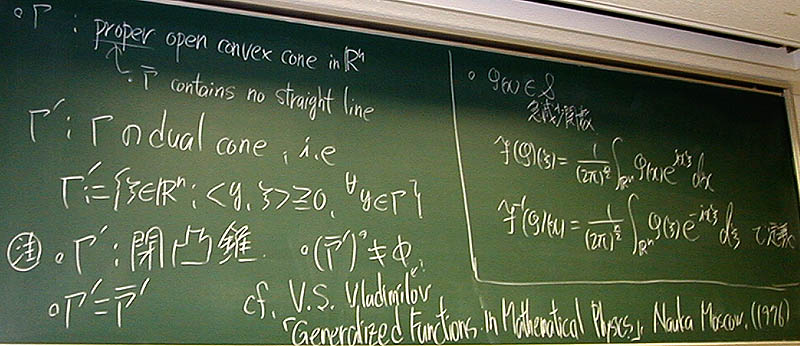 ∘Γ : proper open convex cone in ℝⁿ
∘ Γ̄ contains no straight line
Γ′ : Γ の dual cone, i.e
Γ′ := {ξ∈ℝⁿ ; <y, ξ> ≧ 0, ∀y∈Γ}
注 ∘Γ′ : 閉凸錐 ∘(Γ̄′)° ≠ φ
∘Γ′ = Γ̄′
cf. V.S. Vladimilov
「Generalized Functions in Mathematical Physics」, Nauka Moscow. (1976)
∘ φ(x) ∈ S
急減少関数
F(φ)(ξ) = 1/(2π)^{n/2} ∫_{ℝⁿ} φ(x) e^{ixξ} dx
F⁻¹(φ)(x) = 1/(2π)^{n/2} ∫_{ℝⁿ} φ(ξ) e^{-ixξ} dξ で定義